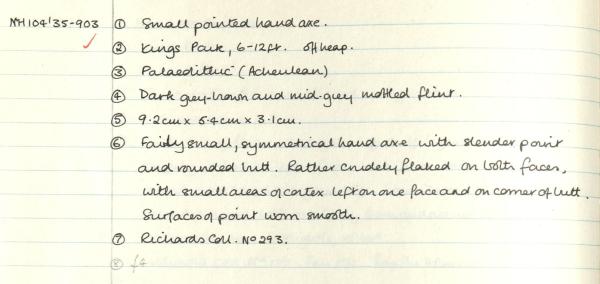 NH104'35-903 ① Small pointed hand axe.
② Kings Park, 6-12ft. off heap.
③ Palaeolithic (Acheulean)
④ Dark grey-brown and mid-grey mottled flint.
⑤ 9.2cm x 5.4cm x 3.1cm.
⑥ Fairly small, symmetrical hand axe with slender point
and rounded butt. Rather crudely flaked on both faces,
with small areas of cortex left on one face and on corner of butt.
Surfaces of point worn smooth.
⑦ Richards Coll. No 293.
⑧ f4